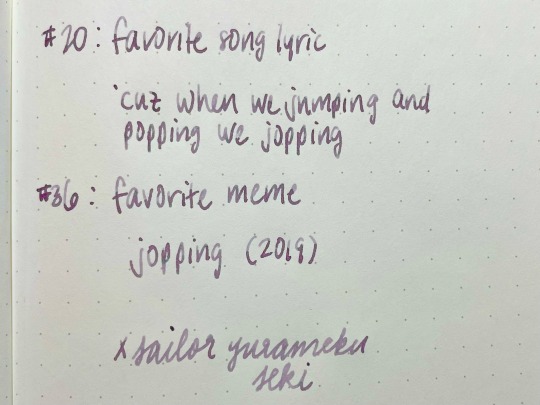 #20: favorite song lyric
'cuz when we jumping and
popping we jopping
#36: favorite meme
jopping (2019)
x sailor yurameku
seki